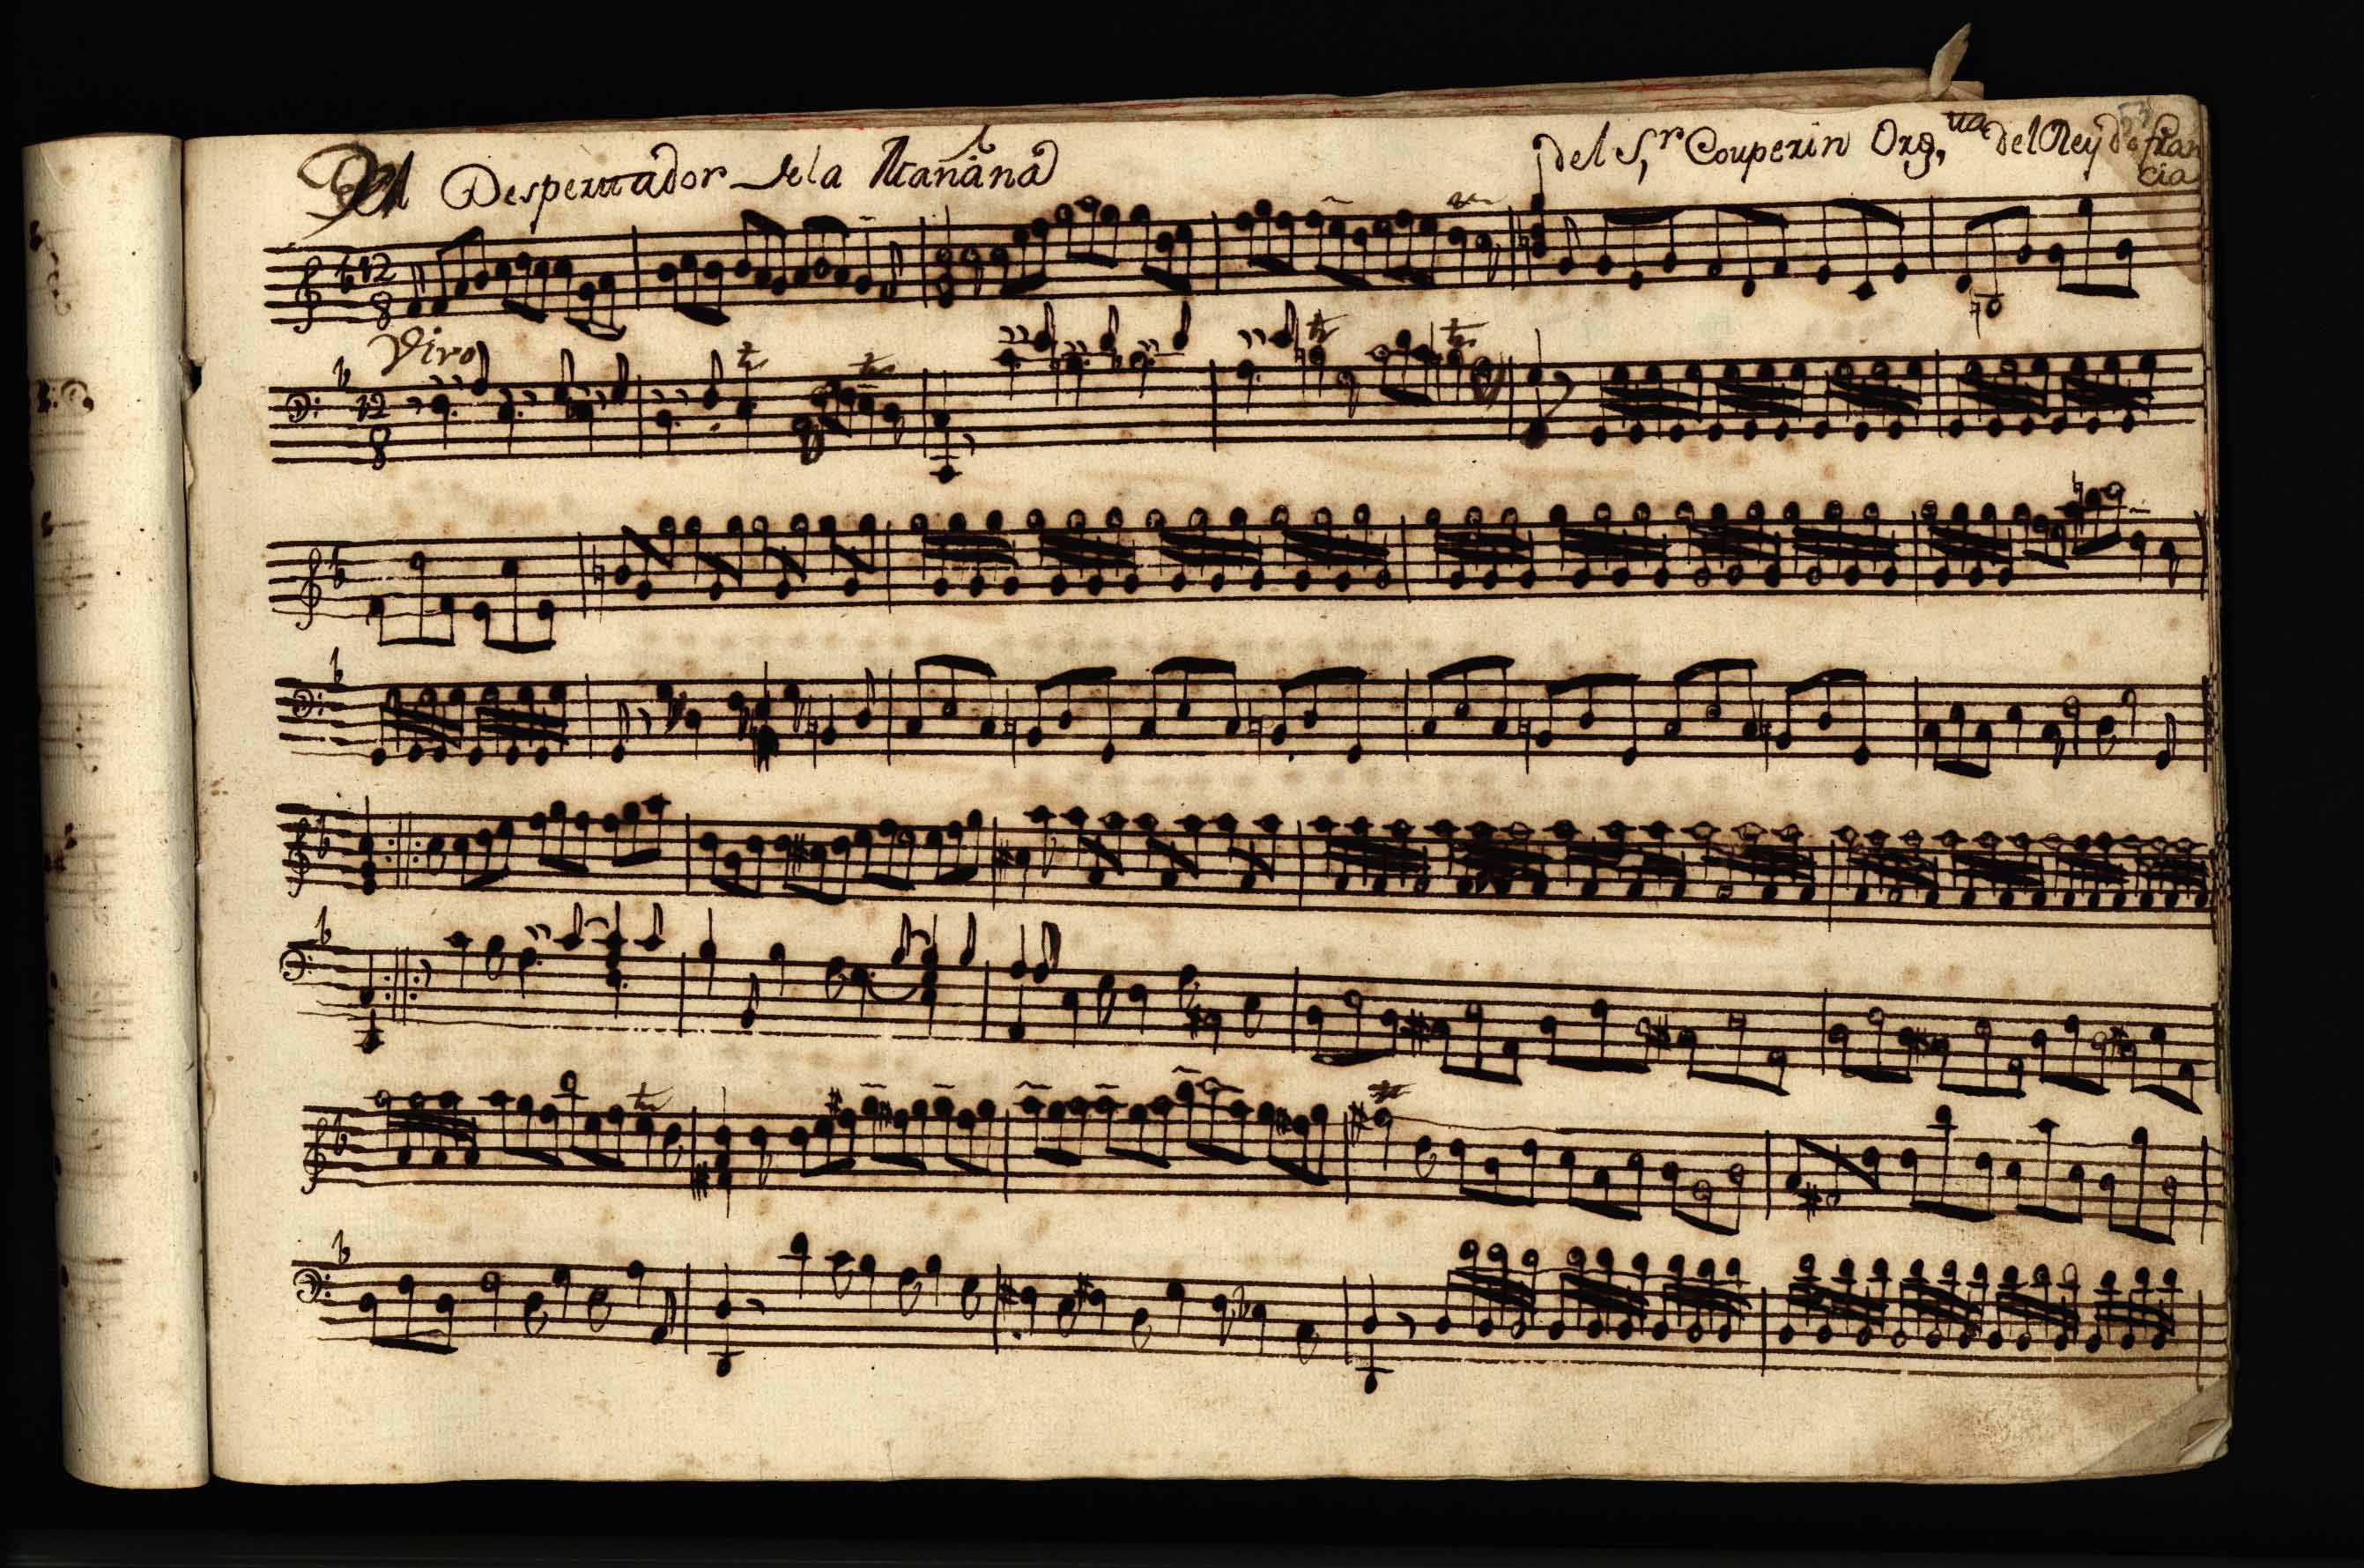 El Despertador de la Mañana
del S.r Couperin Org.tta del Rey de fran
cia
12
8
Vivo
12
8